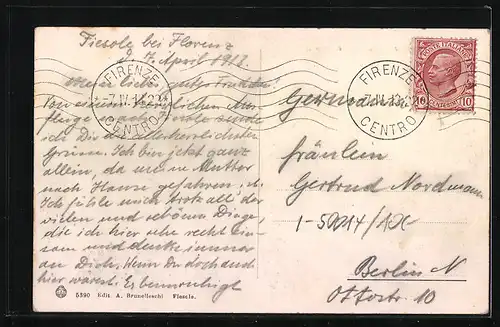 Fiesole bei Florenz
d. 7. April 1912.
Mein liebes, gutes Trudchen!
Von einem herrlichen Aus-
fluge nach Fiesole sende
ich Dir die herzlichsten
Grüsse. Ich bin jetzt ganz
allein, da meine Mutter
nach Hause gefahren ist.
Ich fühle mich trotz all der
vielen und schönen Dinge,
die ich hier sehe recht ein-
sam und denke immer
an Dich. Wenn Du doch auch
hier wärest!
5390 Edit. A. Brunelleschi Fiesole.
FIRENZE
7.IV.12
CENTRO
FIRENZE
7.IV.12
CENTRO
POSTE ITALIANE
10 CENTESIMI 10
Germania
Fräulein
Gertrud Nordmann
1-50014/1X
Berlin N
Ottostr. 10